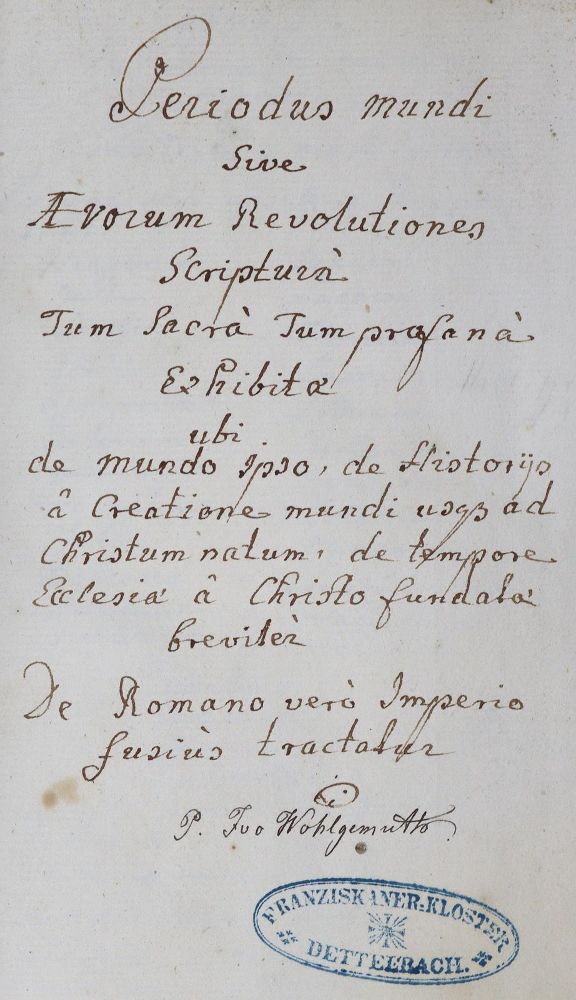 Periodus mundi
Sive
Ævorum Revolutiones
Scripturâ
Tum Sacrâ Tum profanâ
Exhibitæ
ubi
de mundo ipso, de Historijs
â Creatione mundi usqꝫ ad
Christum natum, de tempore
Ecclesiæ â Christo fundatæ
brevitèr
De Romano verò Imperio
fusiùs tractatur
P. Ivo Wohlgemuth
FRANZISKANER-KLOSTER
DETTELBACH.